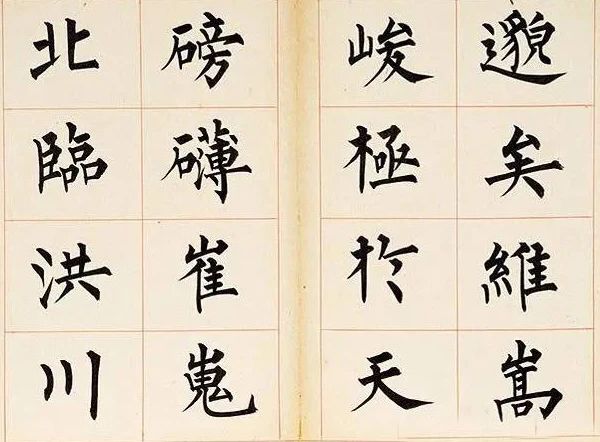 邈矣維嵩
峻極於天
磅礴崔嵬
北臨洪川